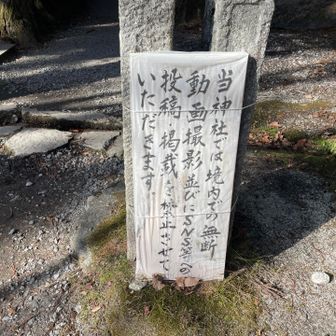 当神社では境内での無断
動画撮影並びにSNS等への
投稿掲載を禁止させて
いただきます。